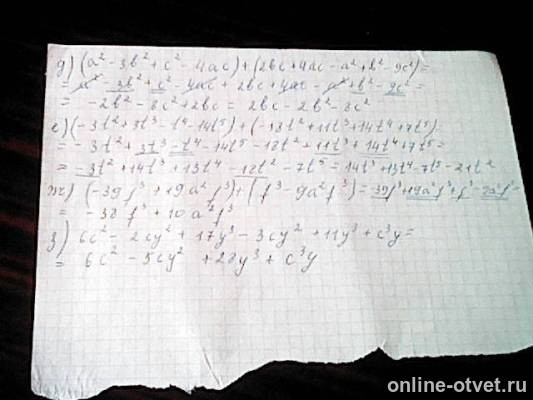 д) (a² - 3b² + c² - 4ac) + (2bc + 4ac - a² + b² - 9c²) =
= a² - 3b² + c² - 4ac + 2bc + 4ac - a² + b² - 9c² =
= -2b² - 8c² + 2bc = 2bc - 2b² - 8c²
е) (-3t² + 3t³ - t⁴ - 14t⁵) + (-18t² + 11t³ + 14t⁴ + 7t⁵)
= -3t² + 3t³ - t⁴ - 14t⁵ - 18t² + 11t³ + 14t⁴ + 7t⁵ =
= -3t² + 14t³ + 13t⁴ - 18t² - 7t⁵ = 14t³ + 13t⁴ - 7t⁵ - 21t²
ж) (-39f³ + 19a²f³) + (f³ - 9a²f³) = 39f³ + 19a²f³ + f³ - 9a²f³ =
= -38f³ + 10a²f³
з) 6c² - 2cy² + 17y³ - 3cy² + 11y³ + c³y =
= 6c² - 5cy² + 28y³ + c³y
online-otvet.ru